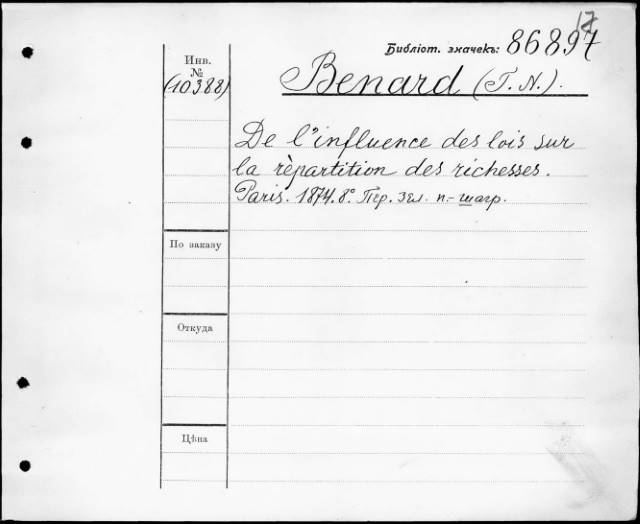 17
Библіот. значекъ: 86897
Инв.
№
(10388)
Benard (T. N.).
De l'influence des lois sur
la rèpartition des richesses.
Paris. 1874. 8° Пер. зел. п.-шагр.
По заказу
Откуда
Цѣна